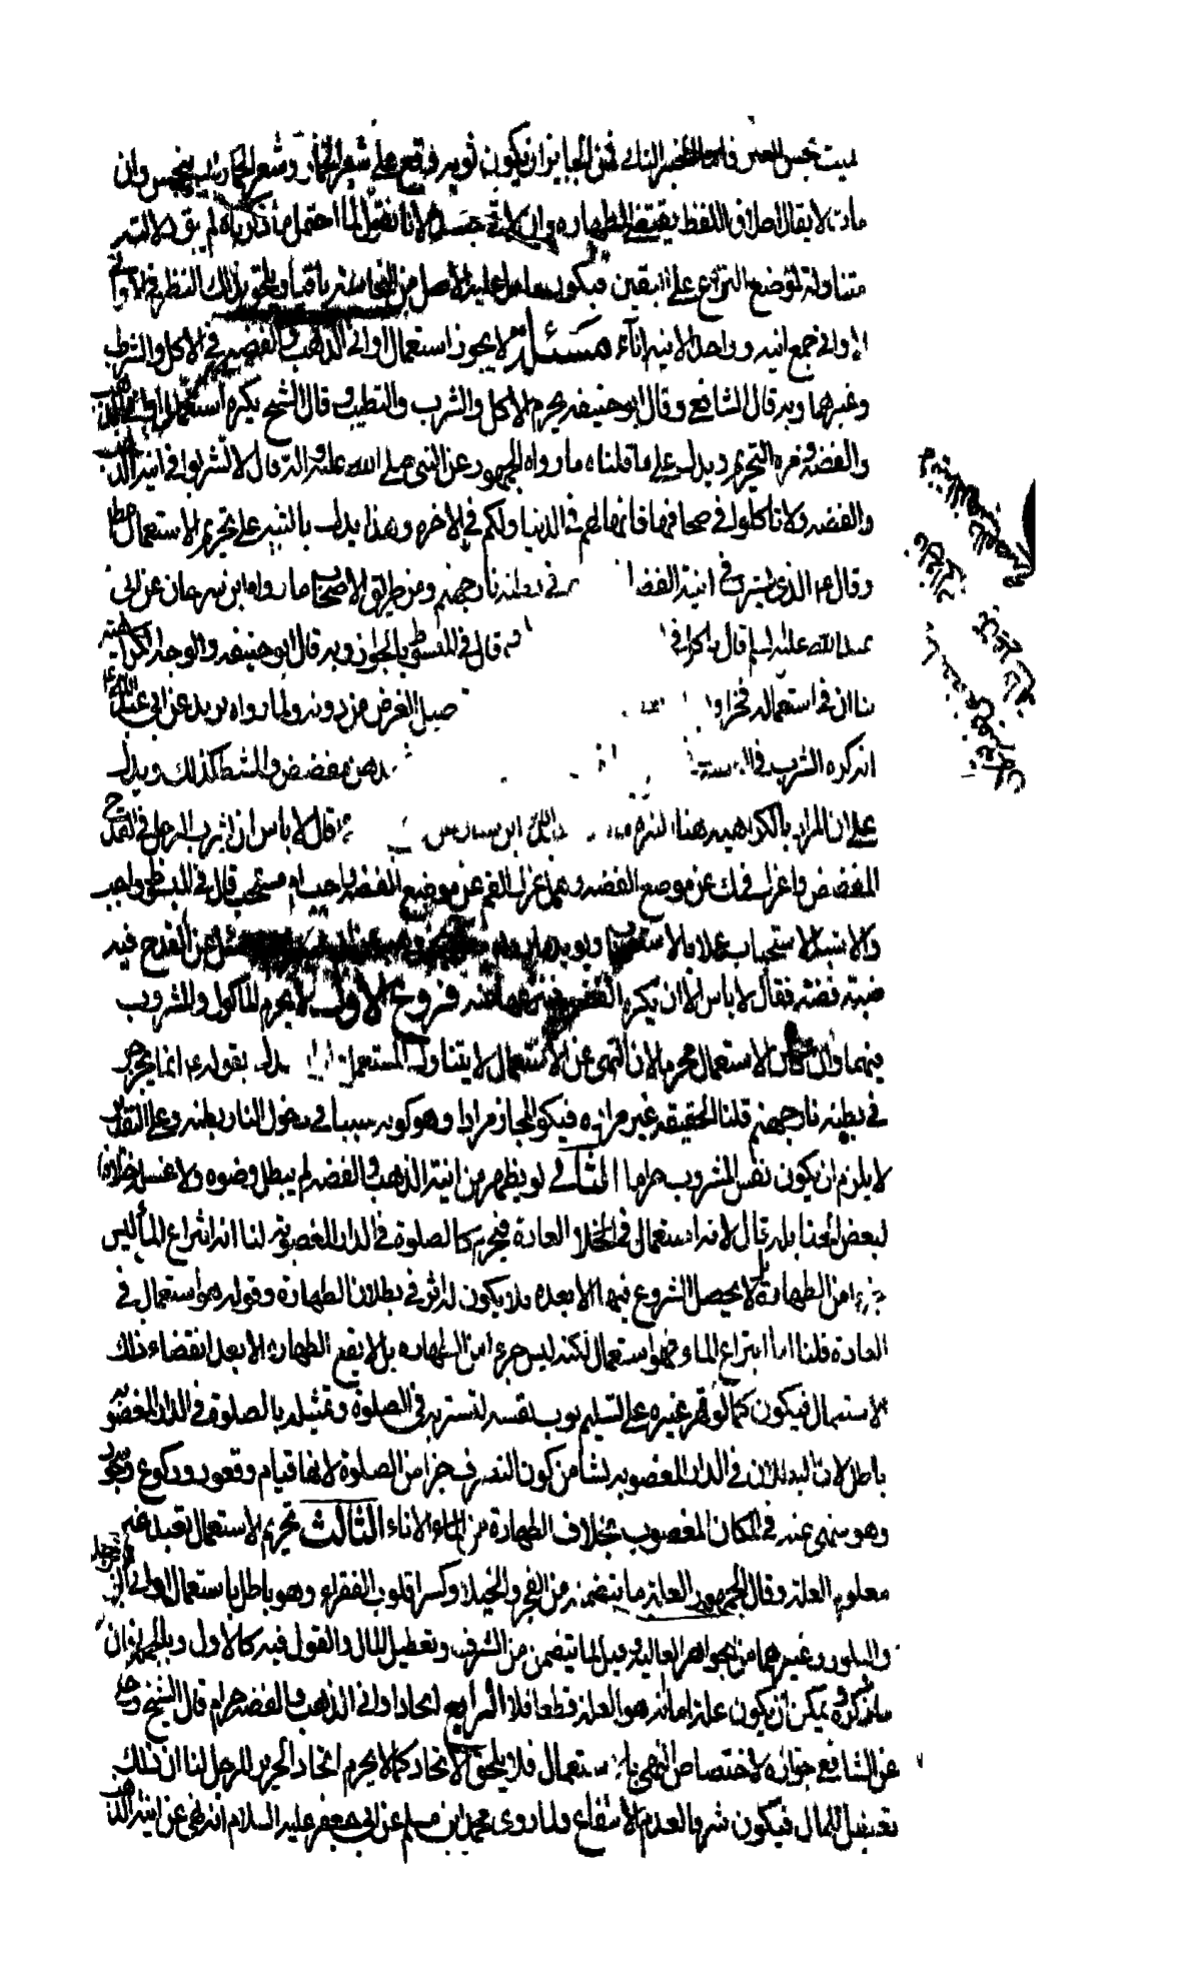 ميت نجس العين فاما الخبر الثاني فمن الجايز ان يكون ثوبه وقع على شعر الحمار وشعر الحمار ليس بنجس وان
مات لا يقال اصلاق اللفظ يقتضي الطهارة وان لانا نقول لما احتمل ما ذكرناه لم يبق دلالته
متناولة لموضع النزاع على اليقين فيكون ما دل عليه الاصل من النجاسة باقيا ويلحق بذلك النظر في الاواني
الاواني جمع انية وواحد الانية اناء مسئلة لا يجوز استعمال اواني الذهب والفضة في الاكل والشرب
وغيرهما وبه قال الشافعي وقال ابو حنيفة يحرم الاكل والشرب والتطيب وقال الشيخ يكره استعمال اواني الذهب
والفضة ومراده التحريم ويدل على ما قلناه ما رواه الجمهور عن النبي صلى الله عليه واله قال لا تشربوا في انية الذهب
والفضة ولا تاكلوا في صحافها فانها لهم في الدنيا ولكم في الاخره وهذا يدل بالتنبيه على تحريم الاستعمال مطلقا
وقال ع الذي يشرب في انية الفضة في بطنه نار جهنم ومن طريق الاصحاب ما رواه ابن سرحان عن ابي
عبد الله عليه السلم قال لا تاكل في قال في المبسوط بالجواز وبه قال ابو حنيفة والوجه الكراهية
لنا ان في استعماله فخرا و صيل الغرض من دونه ولما رواه بريد عن ابي عبد الله ع
انه كره الشرب في الفضة دهن مفضض والمشط كذلك ويدل
على ان المراد بالكراهية هنا التنزيه ابن سنان قال لا باس ان يشرب الرجل في القدح
المفضض واعزل فمك عن موضع الفضة وهل عزل الفم عن موضع الفضة واجب ام مستحب قال في المبسوط واجب
والاشبه الاستحباب عملا بالاستصحاب ويؤيده سئل عن القدح فيه
ضبة فضة فقال لا باس الا ان يكره الفضة فينزعها منه فروع الاول لا يحرم الماكول والمشروب
فيهما وان كان الاستعمال محرما لان النهي عن الاستعمال لا يتناول المستعمل يدل بقوله ع انما يجرجر
في بطنه نار جهنم قلنا الحقيقة غير مرادة فيكون المجاز مرادا وهو كونه سببا في دخول النار بطنه وعلى التقديرين
لا يلزم ان يكون نفس المشروب حراما الثاني لو تطهر من انية الذهب والفضة لم يبطل وضوءه ولا غسله خلافا
لبعض الحنابلة قال لانه استعمال في العبادة فيحرم كالصلوة في الدار المغصوبة لنا ان انتزاع الماء ليس
جزءا من الطهارة بل لا يحصل الشروع فيها الا بعده فلا يكون له اثر في بطلان الطهارة وقوله هو استعمال في
العبادة قلنا اما انتزاع الماء فهو استعمال لكنه ليس جزءا من الطهارة بل لا يقع الطهارة الا بعد انقضاء ذلك
الاستعمال فيكون كما لو قهر غيره على تسليم ثوب لنفسه ليستتر به في الصلوة وتمثيله بالصلوة في الدار المغصوبة
باطل لان البطلان في الدار المغصوبة نشا من كون التصرف جزءا من الصلوة لانها قيام وقعود وركوع وسجود
وهو منهي عنه في المكان المغصوب بخلاف الطهارة من الماء الاناء الثالث تحريم الاستعمال تعبد غير
معلوم العلة وقال الجمهور العلة ما يتضمنه من الفخر والخيلاء وكسر قلوب الفقراء وهو باطل باستعمال اواني الزبرجد
والبلور وغيرهما من الجواهر العالية وقيل لما تتضمن من السرف وتعطيل المال والقول فيه كالاول وبالجملة ان
ما ذكروه يمكن ان يكون علة اما انه هو العلة قطعا فلا الرابع اتخاذ اواني الذهب والفضة حرام قال الشيخ وحكي
عن الشافعي جوازه لاختصاص النهي بالاستعمال فلا يلحق الاتخاذ كما لا يحرم اتخاذ الحرير للرجل لنا ان ذلك
تعطيل للمال فيكون سرفا لعدم الانتفاع ولما روى محمد ابن مسلم عن ابي جعفر عليه السلام انه نهى عن انية الذهب